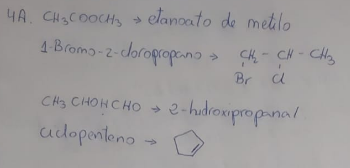 4A. CH₃COOCH₃ → etanoato de metilo
1-Bromo-2-cloropropano → CH₂ - CH - CH₃
Br Cl
CH₃ CHOHCHO → 2-hidroxipropanal
ciclopenteno →